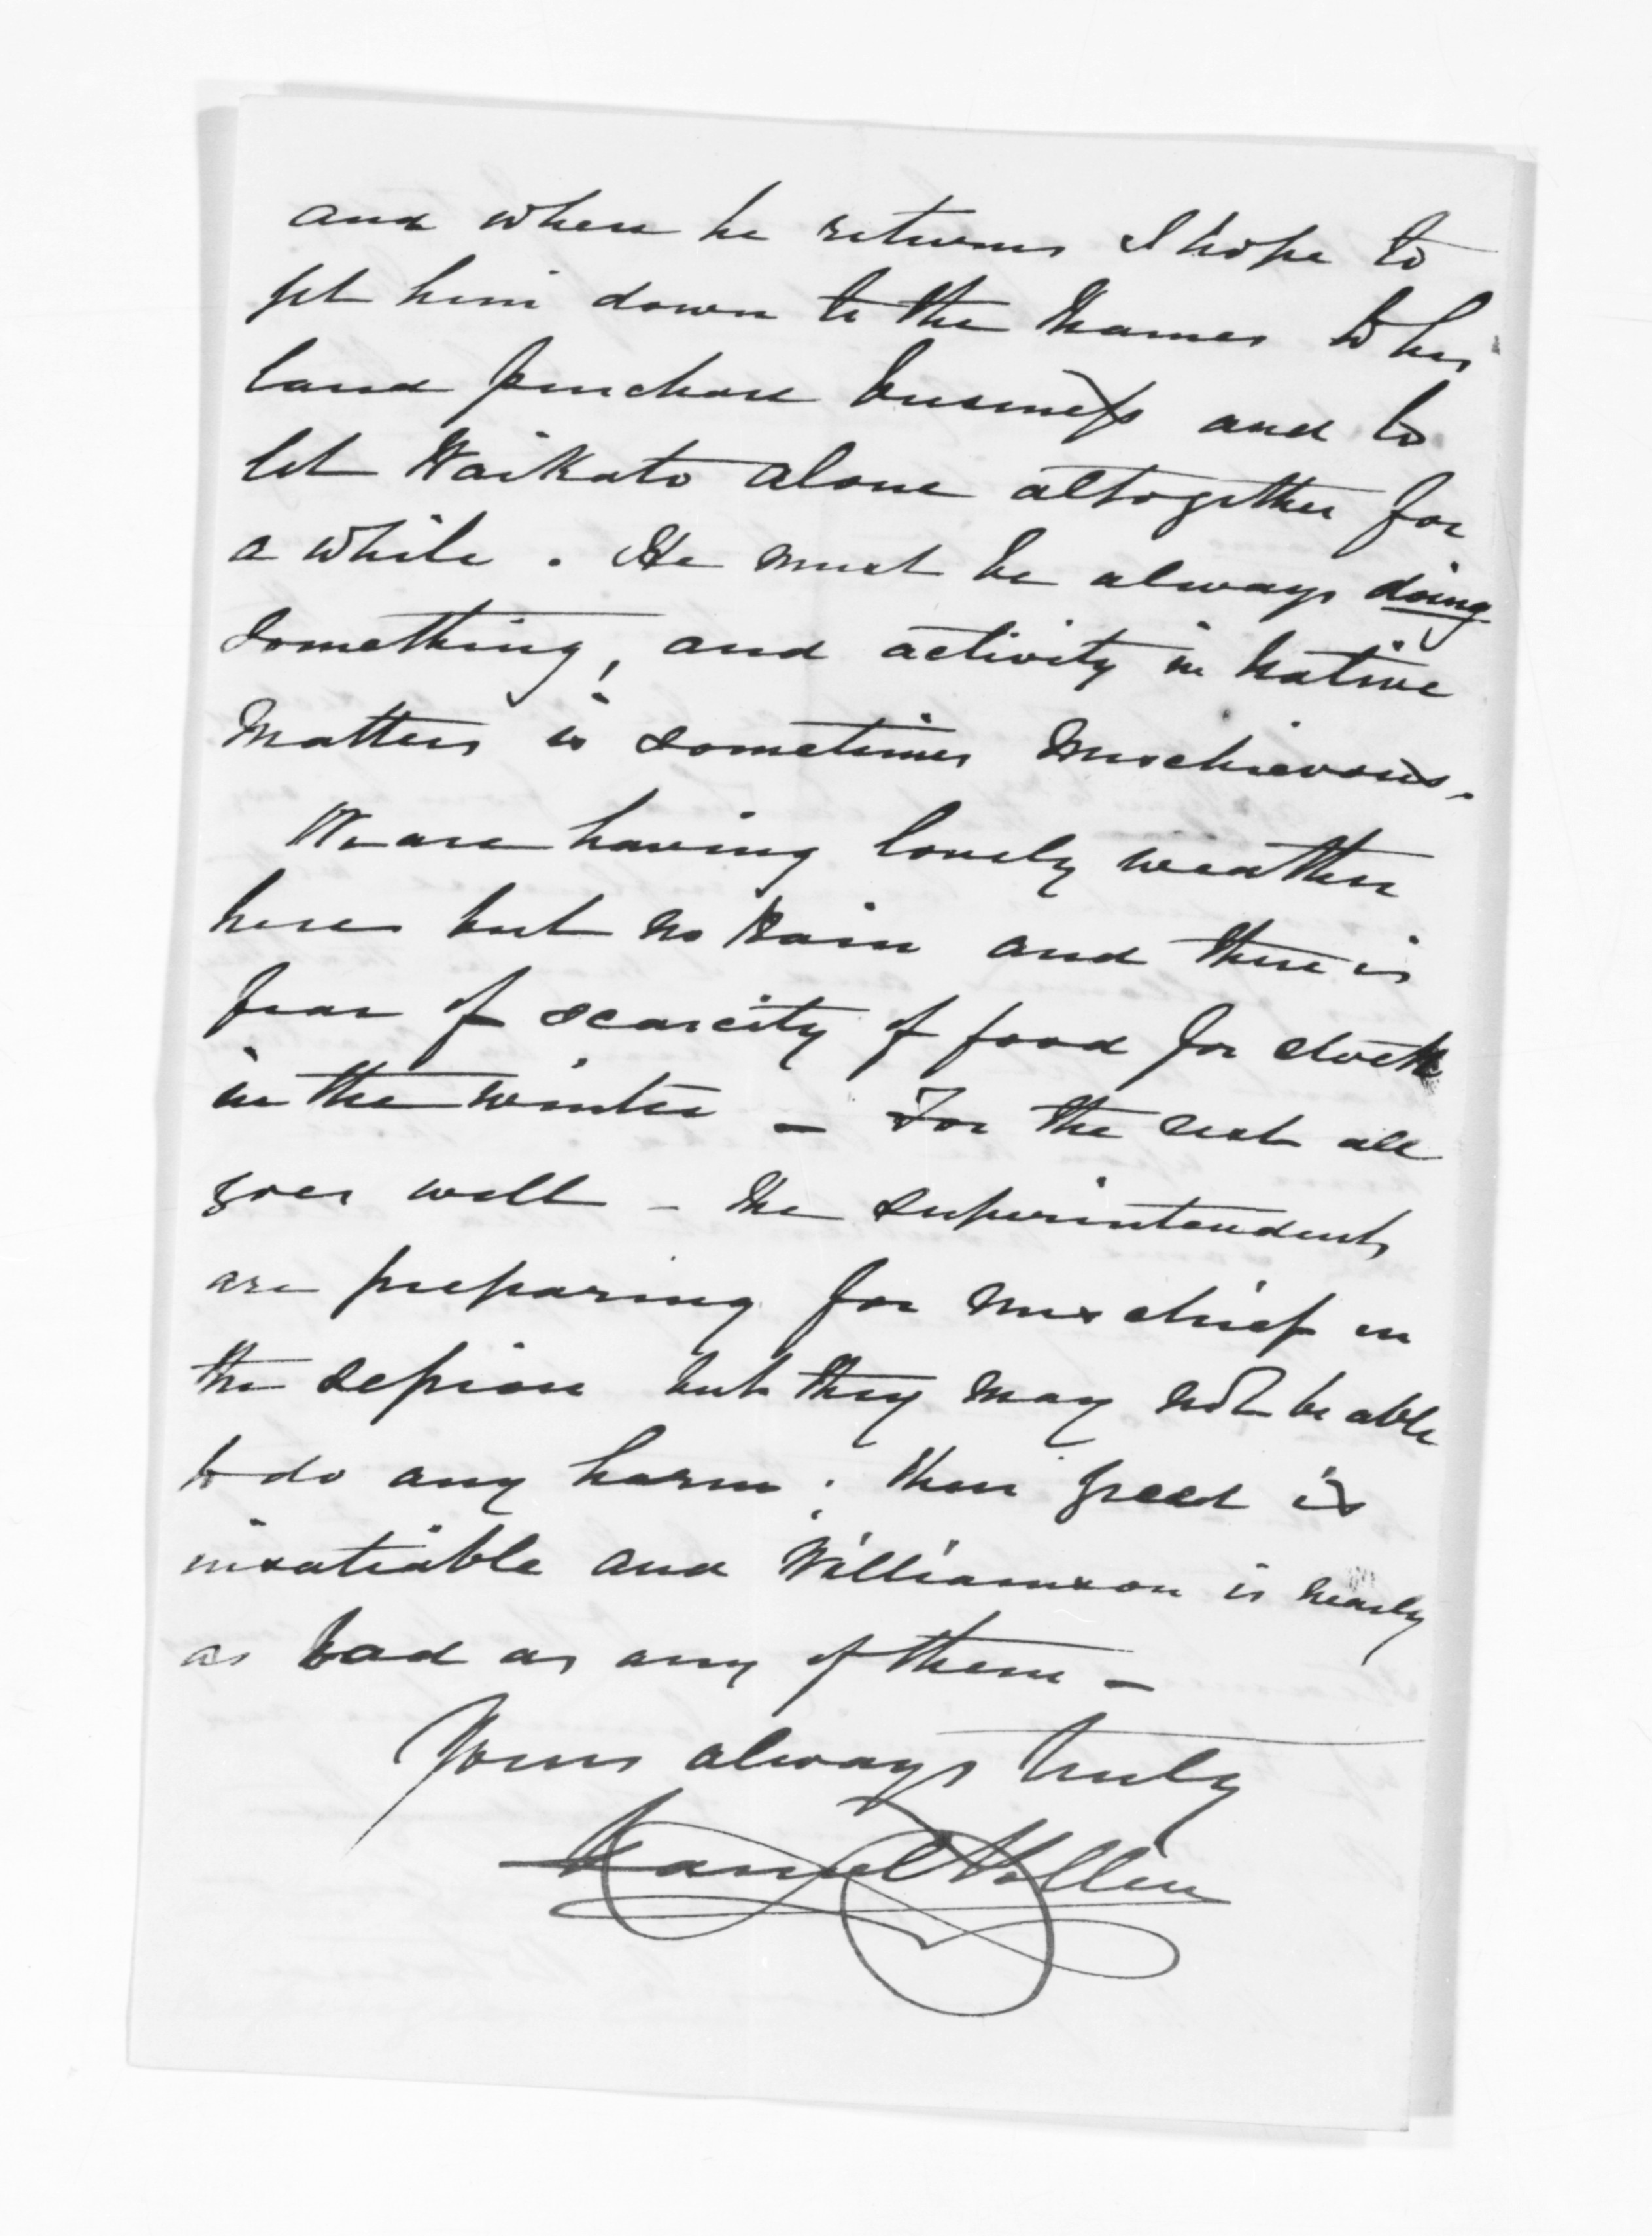 and when he returns I hope to
get him down to the Thames to his
land purchase business and to
let Waikato alone altogether for
a while. He must be always doing
something, and activity in Native
Matters is sometimes Mischievous.
We are having lovely weather
here but no Rain and there is
fear of scarcity of food for stock
in the winter – For the rest all
goes well – the Superintendents
are preparing for mischief in
the session but they may not be able
to do any harm; their greed is
insatiable and Williamson is nearly
as bad as any of them –
Yours always truly
Daniel Pollen